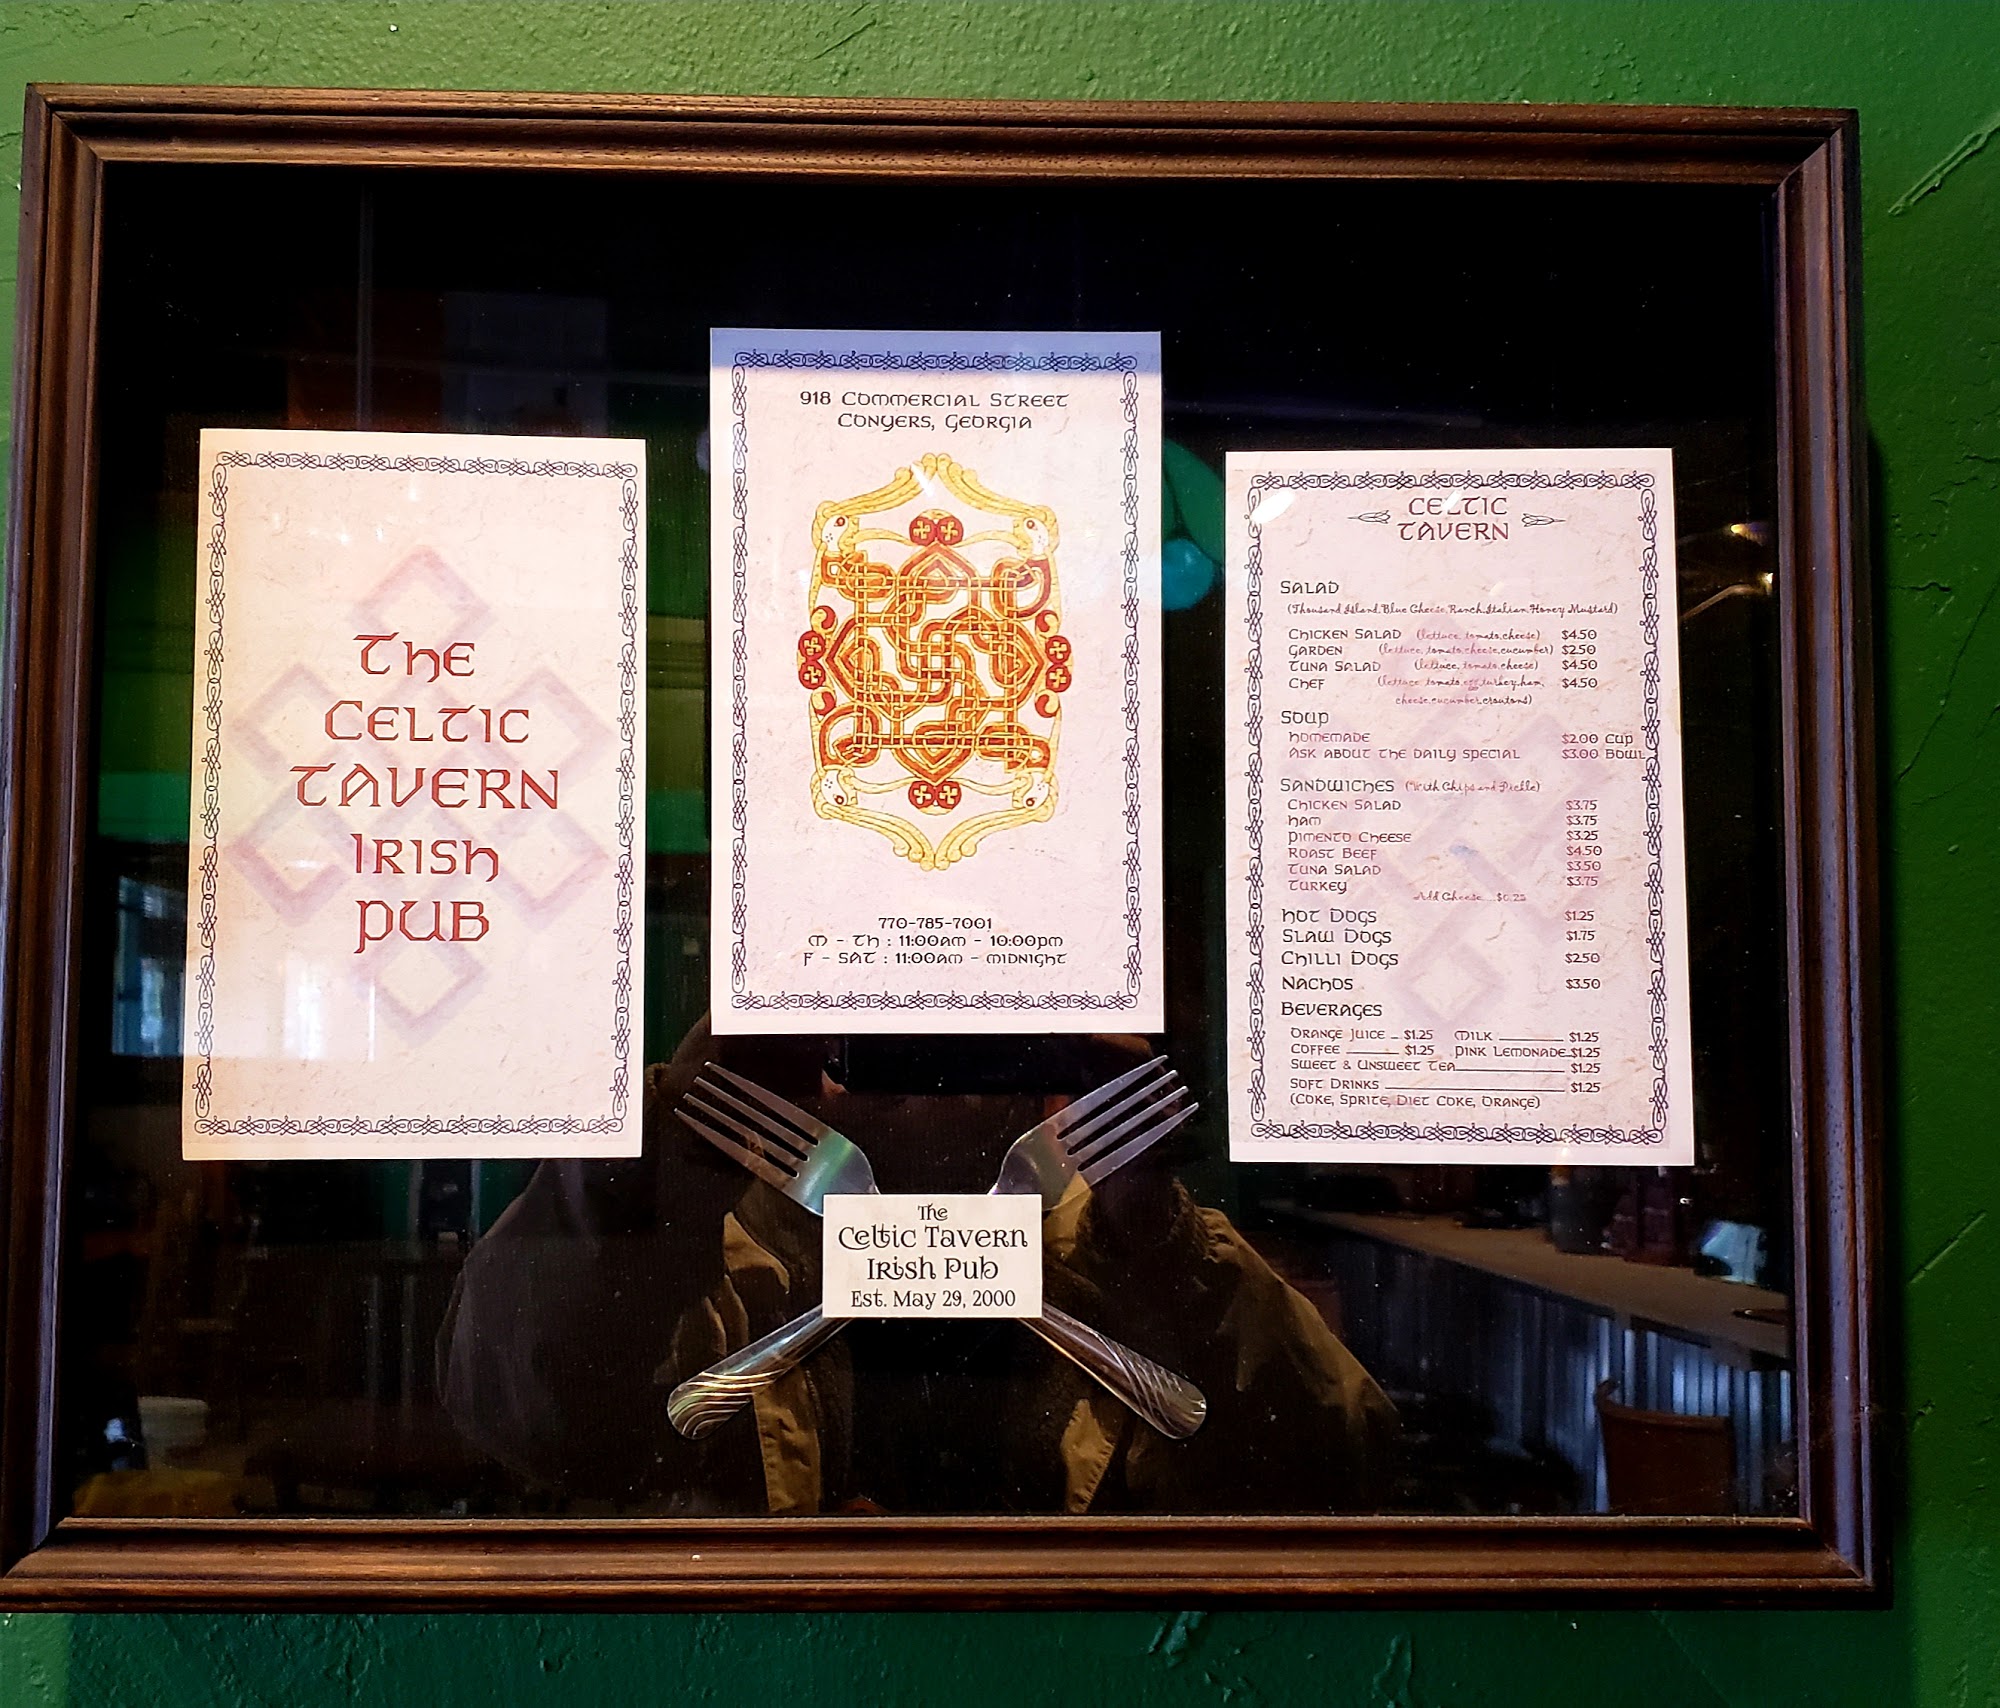 The
Celtic
Tavern
Irish
Pub
918 Commercial Street
Conyers, Georgia
770-785-7001
M - Th : 11:00am - 10:00pm
F - Sat : 11:00am - midnight
Celtic
Tavern
Salad
(Thousand Island, Blue Cheese, Ranch, Italian, Honey Mustard)
Chicken Salad (lettuce, tomato, cheese) $4.50
Garden (lettuce, tomato, cheese, cucumber) $2.50
Tuna Salad (lettuce, tomato, cheese) $4.50
Chef (lettuce, tomato, egg, turkey, ham, $4.50
cheese, cucumber, croutons)
Soup
Homemade $2.00 Cup
Ask about the daily special $3.00 Bowl
Sandwiches (With Chips and Pickle)
Chicken Salad $3.75
Ham $3.75
Pimento Cheese $3.25
Roast Beef $4.50
Tuna Salad $3.50
Turkey $3.75
Add Cheese....$0.25
Hot Dogs $1.25
Slaw Dogs $1.75
Chilli Dogs $2.50
Nachos $3.50
Beverages
Orange Juice $1.25 Milk $1.25
Coffee $1.25 Pink Lemonade $1.25
Sweet & Unsweet Tea $1.25
Soft Drinks $1.25
(Coke, Sprite, Diet Coke, Orange)
The
Celtic Tavern
Irish Pub
Est. May 29, 2000